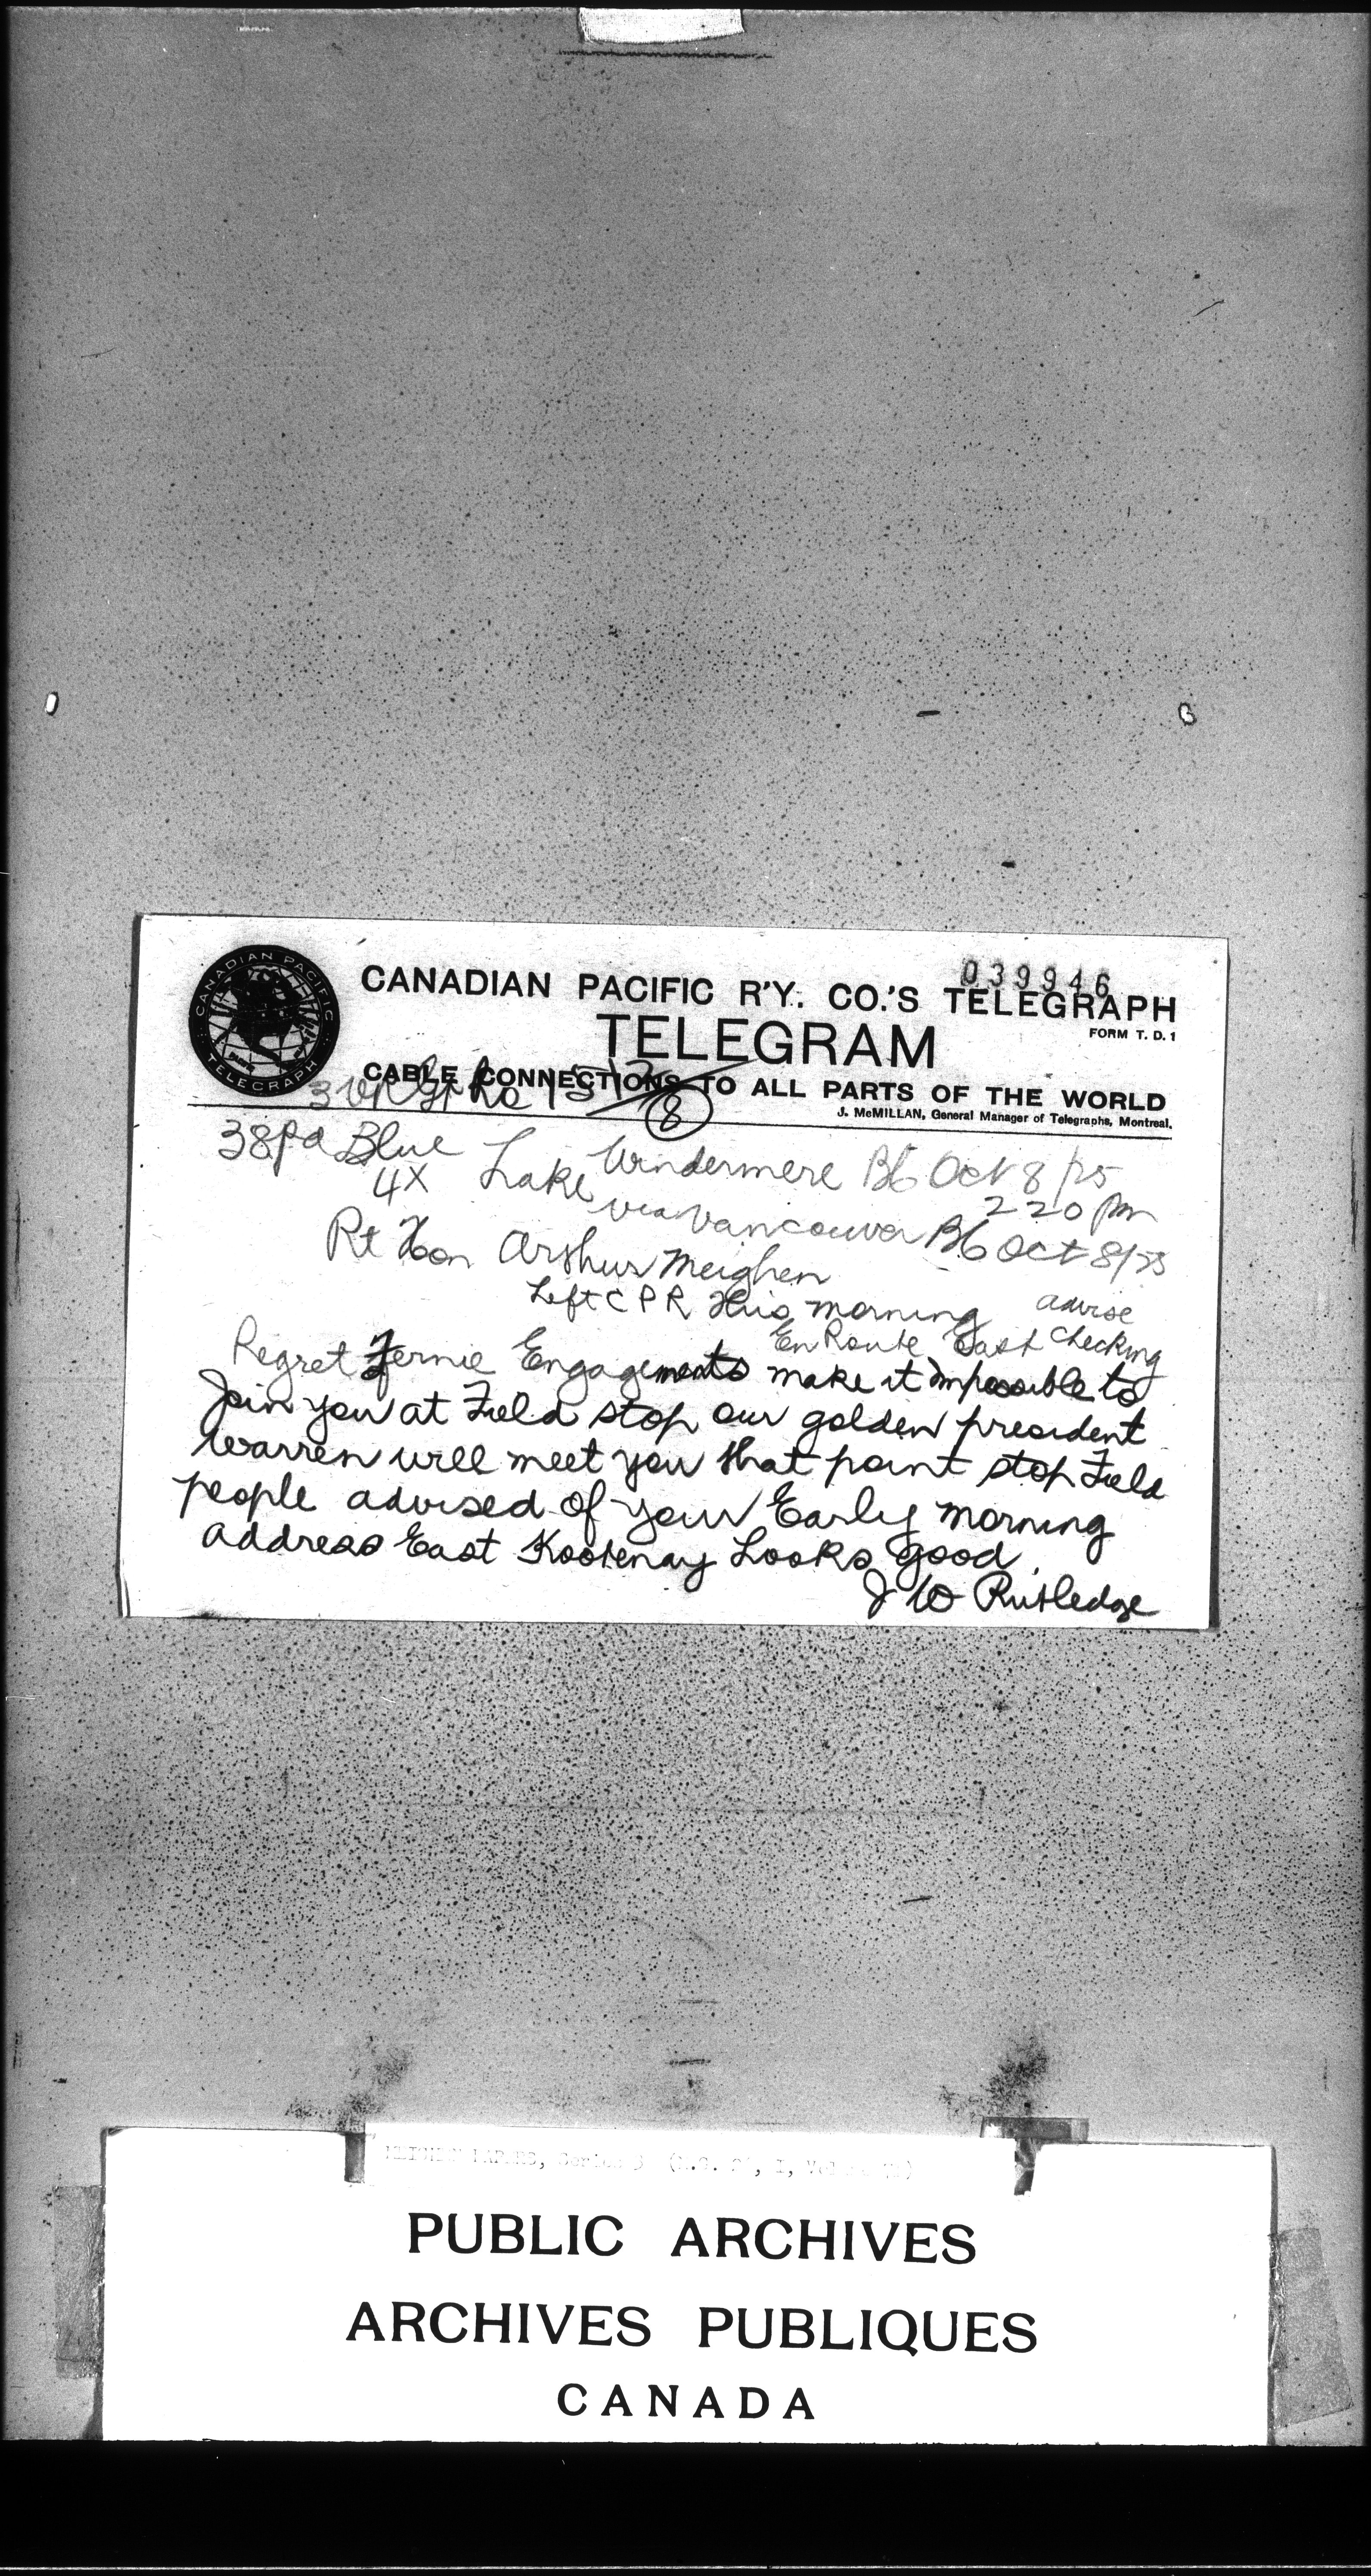 039946
CANADIAN PACIFIC R'Y. CO.'S TELEGRAPH
TELEGRAM
FORM T. D. 1
CABLE CONNECTIONS TO ALL PARTS OF THE WORLD
J. McMILLAN, General Manager of Telegraphs, Montreal.
CANADIAN PACIFIC
TELEGRAPH
8
38 pd Blue
4X Lake Windermere BC Oct 8/25
via Vancouver BC Oct 8/25
220 pm
Rt Hon Arthur Meighen
Left CPR this morning advise
En Route East checking
Regret Fernie Engagements make it impossible to
Join you at Field stop our golden president
warren will meet you that point stop Field
people advised of your Early morning
address East Kootenay Looks good
J W Rutledge
PUBLIC ARCHIVES
ARCHIVES PUBLIQUES
CANADA